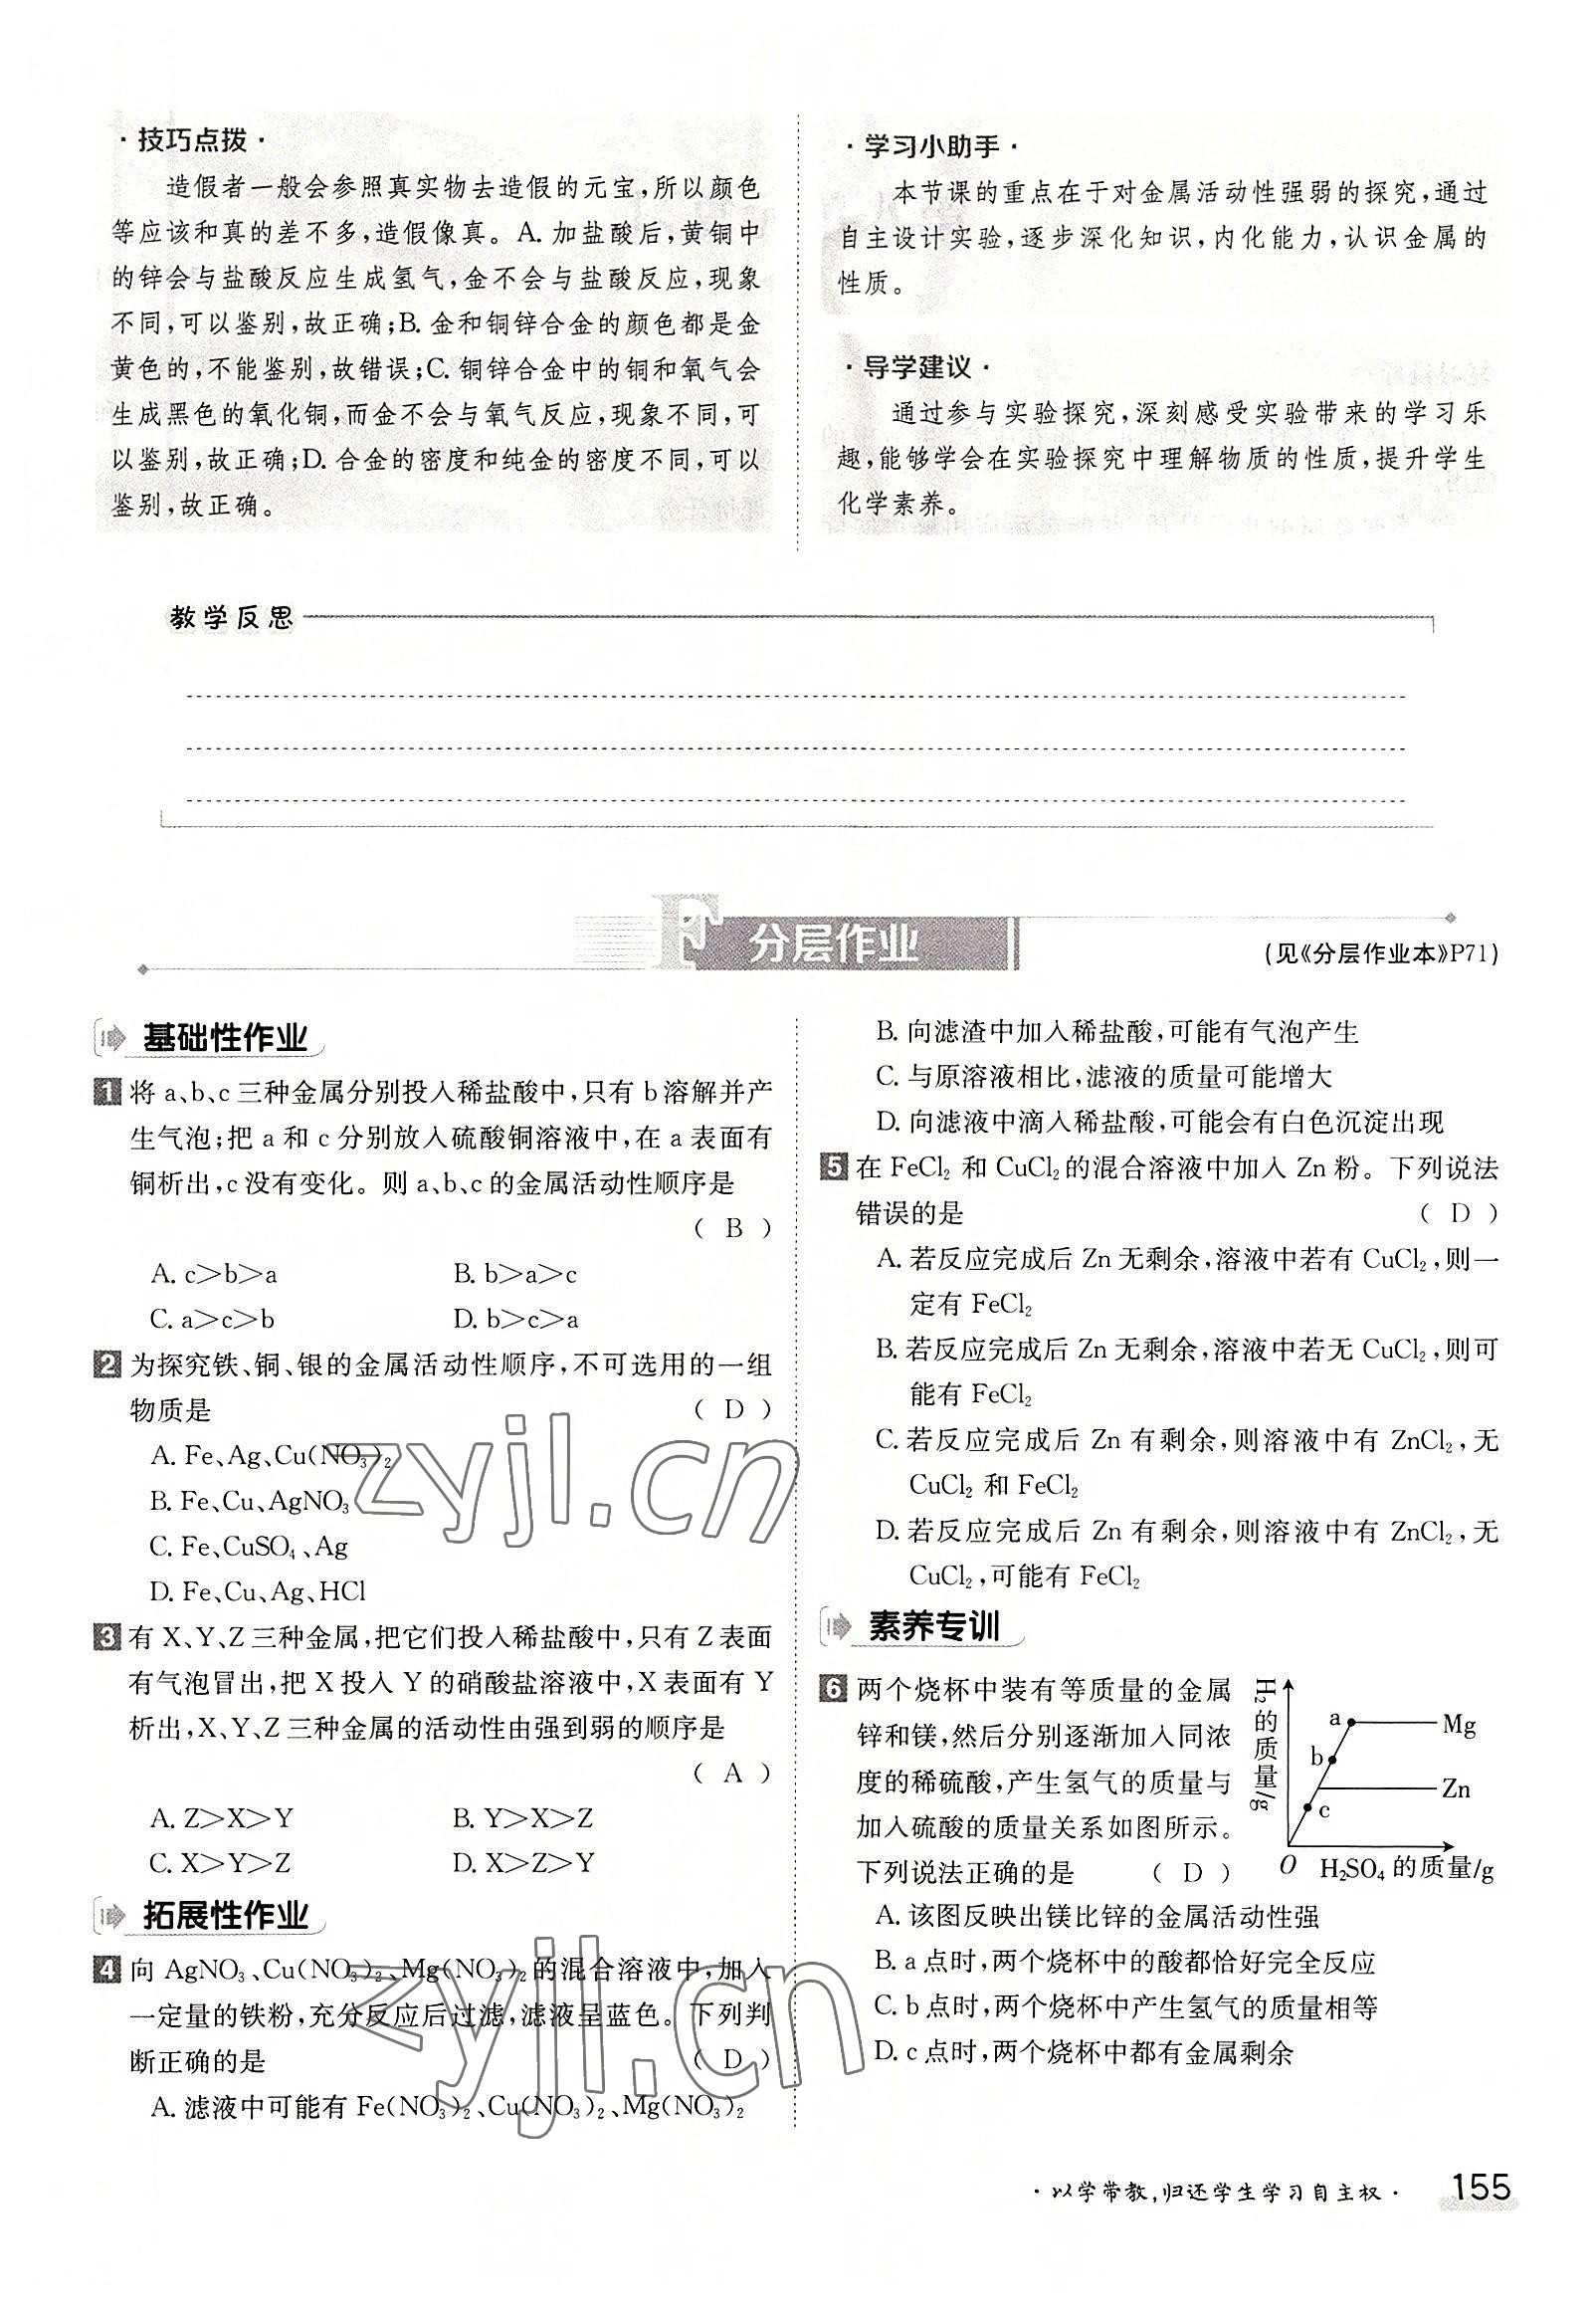 ·技巧点拨·
造假者一般会参照真实物去造假的元宝,所以颜色
等应该和真的差不多,造假像真。A. 加盐酸后,黄铜中
的锌会与盐酸反应生成氢气,金不会与盐酸反应,现象
不同,可以鉴别,故正确;B. 金和铜锌合金的颜色都是金
黄色的,不能鉴别,故错误;C. 铜锌合金中的铜和氧气会
生成黑色的氧化铜,而金不会与氧气反应,现象不同,可
以鉴别,故正确;D. 合金的密度和纯金的密度不同,可以
鉴别,故正确。
·学习小助手·
本节课的重点在于对金属活动性强弱的探究,通过
自主设计实验,逐步深化知识,内化能力,认识金属的
性质。
·导学建议·
通过参与实验探究,深刻感受实验带来的学习乐
趣,能够学会在实验探究中理解物质的性质,提升学生
化学素养。
教学反思
F 分层作业
(见《分层作业本》P71)
基础性作业
1 将 a、b、c 三种金属分别投入稀盐酸中,只有 b 溶解并产
生气泡;把 a 和 c 分别放入硫酸铜溶液中,在 a 表面有
铜析出,c 没有变化。则 a、b、c 的金属活动性顺序是
( B )
A. c>b>a B. b>a>c
C. a>c>b D. b>c>a
2 为探究铁、铜、银的金属活动性顺序,不可选用的一组
物质是 ( D )
A. Fe、Ag、Cu(NO₃)₂
B. Fe、Cu、AgNO₃
C. Fe、CuSO₄、Ag
D. Fe、Cu、Ag、HCl
3 有 X、Y、Z 三种金属,把它们投入稀盐酸中,只有 Z 表面
有气泡冒出,把 X 投入 Y 的硝酸盐溶液中,X 表面有 Y
析出,X、Y、Z 三种金属的活动性由强到弱的顺序是
( A )
A. Z>X>Y B. Y>X>Z
C. X>Y>Z D. X>Z>Y
拓展性作业
4 向 AgNO₃、Cu(NO₃)₂、Mg(NO₃)₂的混合溶液中,加入
一定量的铁粉,充分反应后过滤,滤液呈蓝色。下列判
断正确的是 ( D )
A. 滤液中可能有 Fe(NO₃)₂、Cu(NO₃)₂、Mg(NO₃)₂
B. 向滤渣中加入稀盐酸,可能有气泡产生
C. 与原溶液相比,滤液的质量可能增大
D. 向滤液中滴入稀盐酸,可能会有白色沉淀出现
5 在 FeCl₂ 和 CuCl₂的混合溶液中加入 Zn 粉。下列说法
错误的是 ( D )
A. 若反应完成后 Zn 无剩余,溶液中若有 CuCl₂,则一
定有 FeCl₂
B. 若反应完成后 Zn 无剩余,溶液中若无 CuCl₂,则可
能有 FeCl₂
C. 若反应完成后 Zn 有剩余,则溶液中有 ZnCl₂,无
CuCl₂ 和 FeCl₂
D. 若反应完成后 Zn 有剩余,则溶液中有 ZnCl₂,无
CuCl₂,可能有 FeCl₂
素养专训
6 两个烧杯中装有等质量的金属
锌和镁,然后分别逐渐加入同浓
度的稀硫酸,产生氢气的质量与
加入硫酸的质量关系如图所示。
下列说法正确的是 ( D )
H₂的质量/g
a
Mg
b
Zn
c
O
H₂SO₄的质量/g
A. 该图反映出镁比锌的金属活动性强
B. a 点时,两个烧杯中的酸都恰好完全反应
C. b 点时,两个烧杯中产生氢气的质量相等
D. c 点时,两个烧杯中都有金属剩余
zyjl.cn
zyjl.cn
·以学带教,归还学生学习自主权· 155